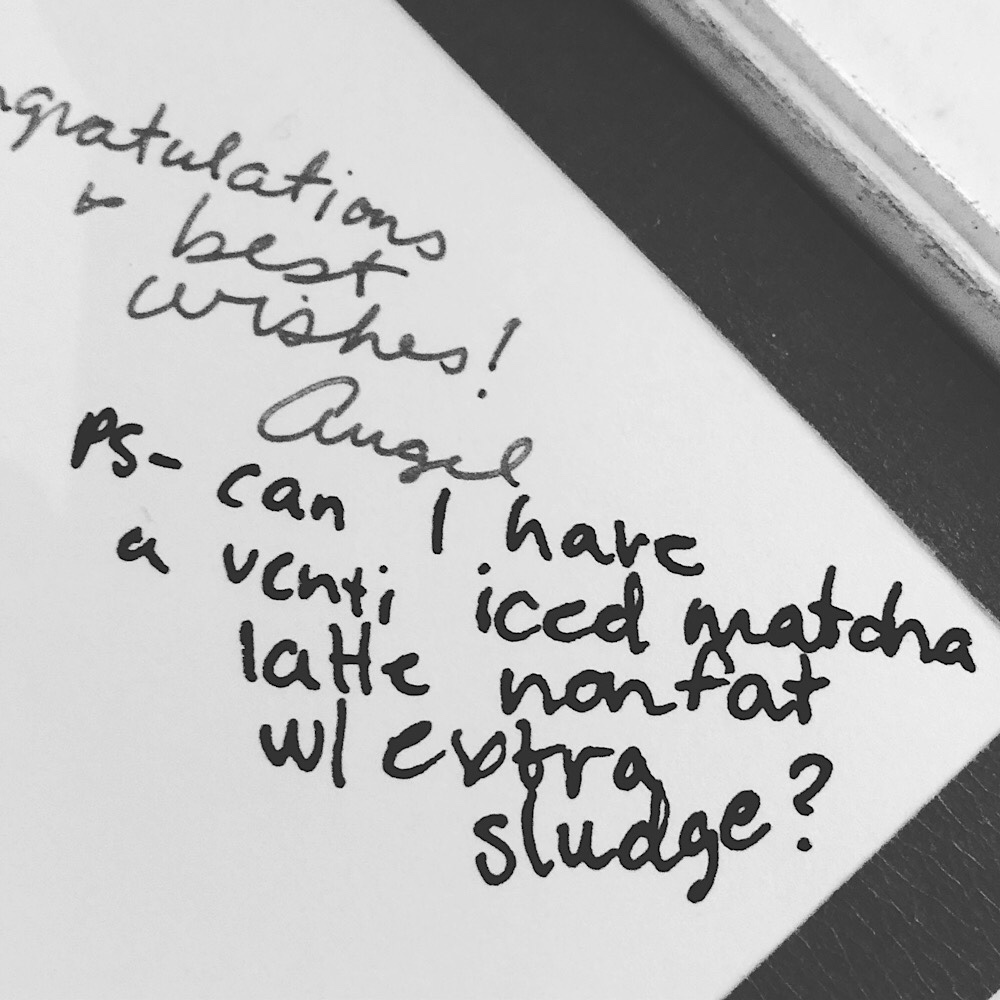 ngratulations
& best
wishes!
Angel
PS- can I have
a venti iced matcha
latte nonfat
w/ extra
sludge?